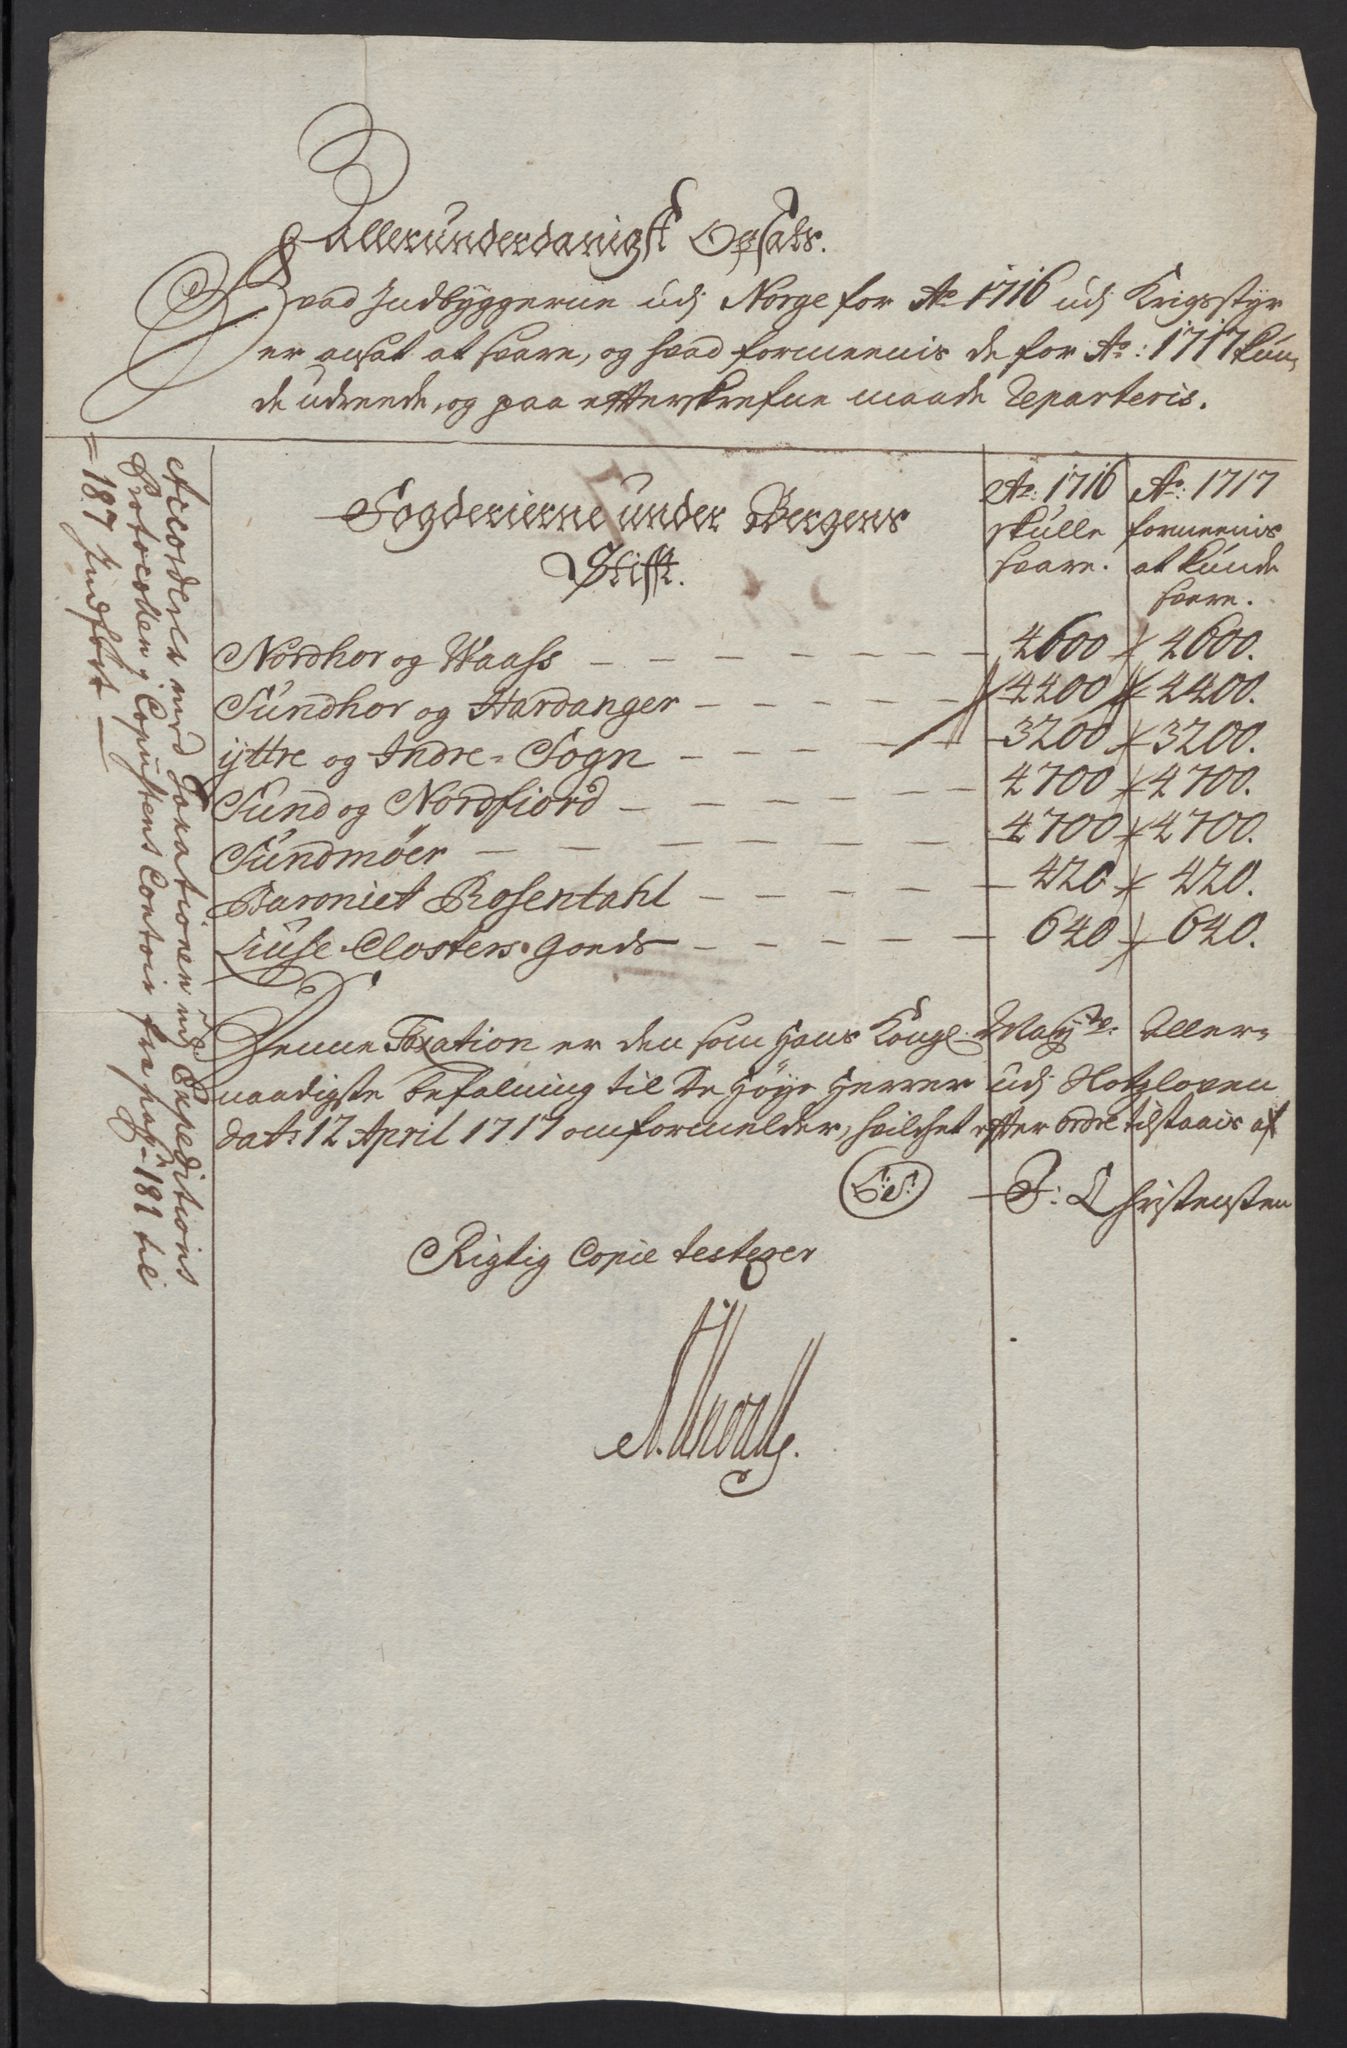 Allerunderdanigst Opsats.
Hvad Indbyggerne udj Norge for Ao 1716 udj Krigsstyr
er ansat at svare, og hvad formeenis de for Ao: 1717 kun-
de udreede, og paa efterskrefne maade Reparteris.
Fogderierne under Bergens
Stifft.
Ao: 1716
skulle
svare.
Ao: 1717
formeenis
at kunde
svare.
Nordhor og Waass — 4600 4600.
Sundhor og Hardanger — 4400 4400.
yttre og Indre-Sogn — 3200 3200.
Sund og Nordfiord — 4700 4700.
Sundmøer — 4700 4700.
Baroniet Rosentahl — 420 420.
Liuse Closters Goeds — 640 640.
Denne Taxation er den som Hans Kongl. Mayts: Aller-
naadigste befalning til De Høye Herrer udj Slotzloven
dat: 12 April 1717 omformelder, hvilchet efter ordre tilstaais af
L:S: F: Christensen
Rigtig Copie testerer
Accorderer med Taxationen udj Expeditions
Protocollen j Copiistens Contoir fra pag: 181 til
= 187 Indført —